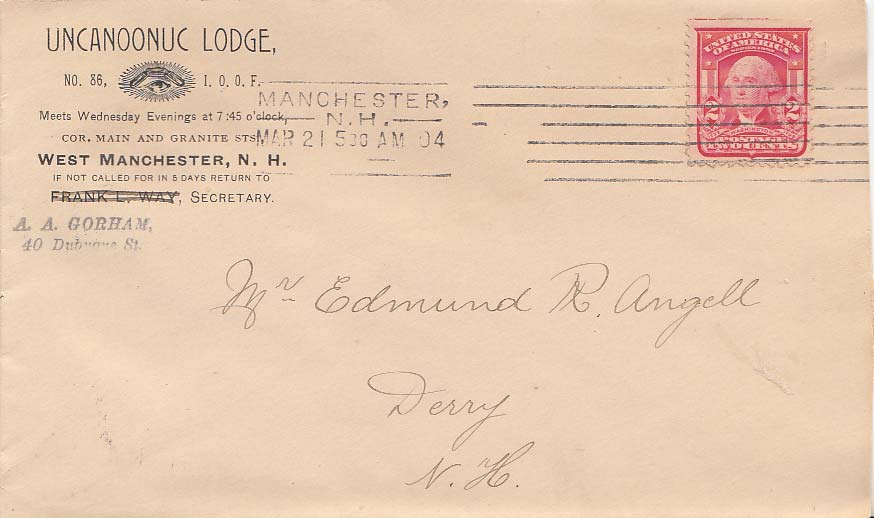 UNCANOONUC LODGE,
NO. 86, I. O. O. F.
Meets Wednesday Evenings at 7:45 o'clock,
COR. MAIN AND GRANITE STS.
WEST MANCHESTER, N. H.
IF NOT CALLED FOR IN 5 DAYS RETURN TO
FRANK L. WAY, SECRETARY.
A. A. GORHAM,
40 St.
MANCHESTER,
N. H.
MAR 21 5 30 AM 04
UNITED STATES
OF AMERICA
SERIES 1902
2 2
WASHINGTON
POSTAGE
TWO CENTS
Mr Edmund R. Angell
Derry
N. H.